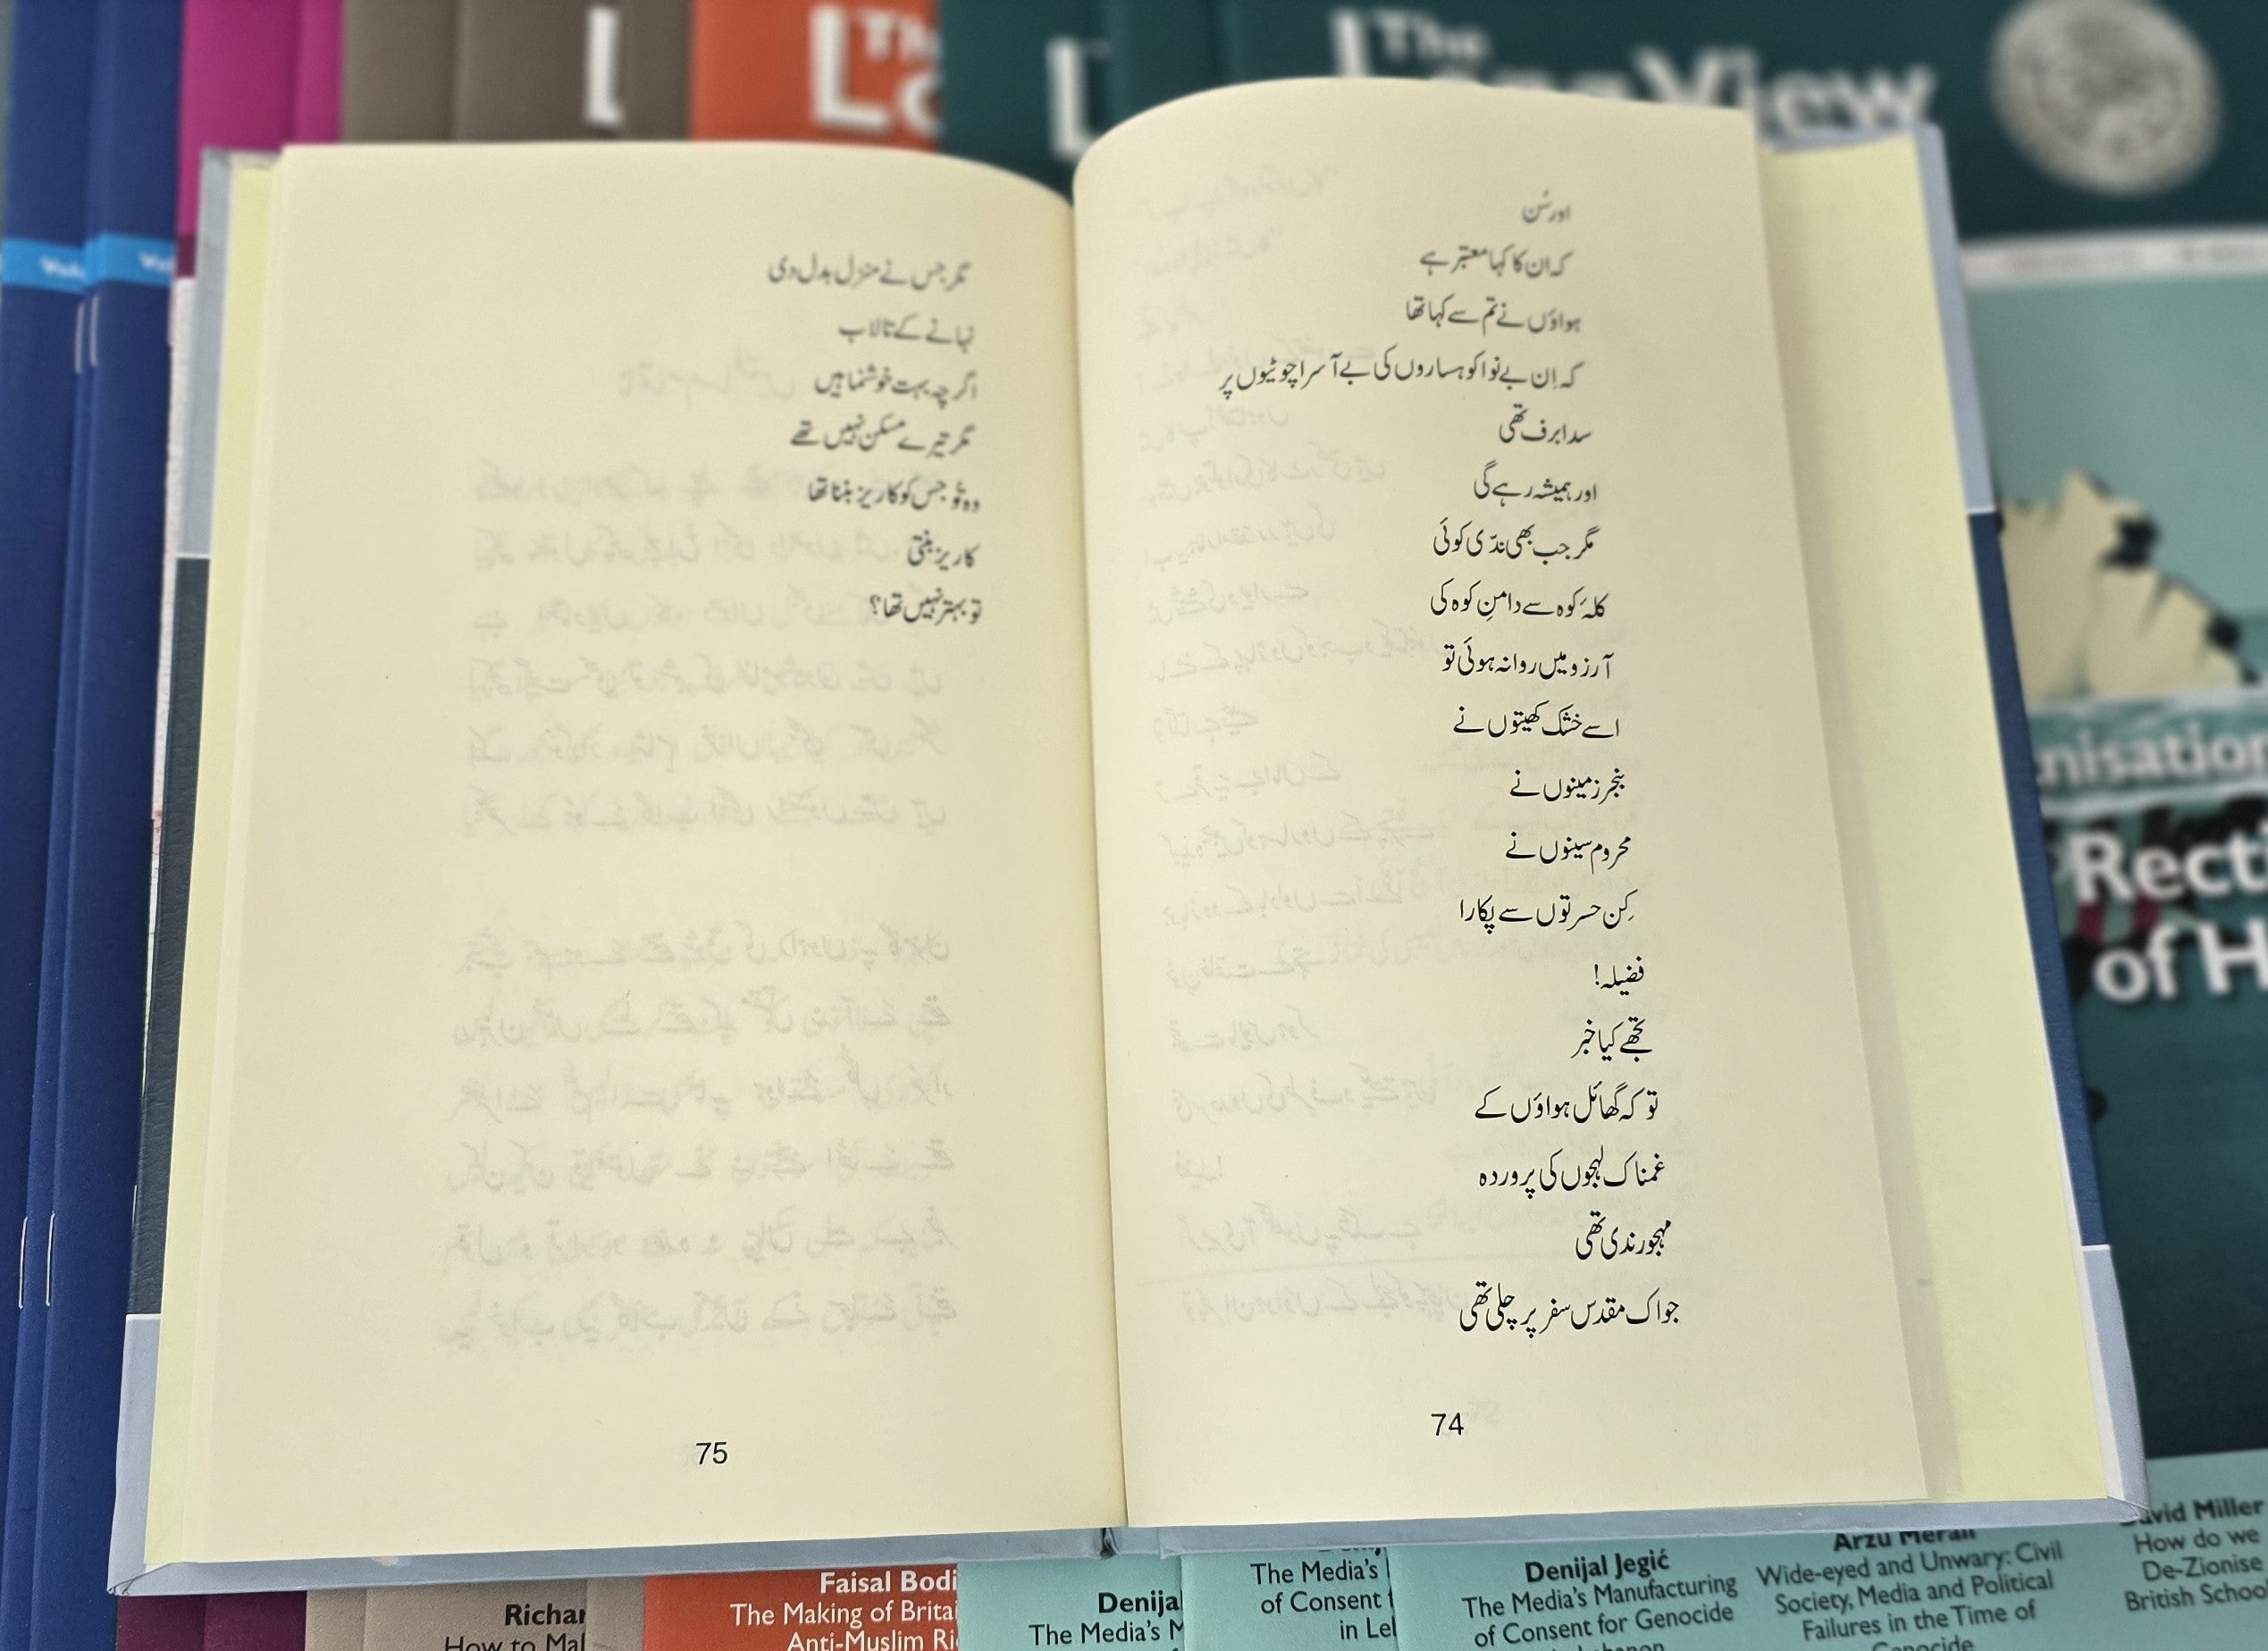 اور سُن
کہ ان کا کہا معتبر ہے
ہواؤں نے تم سے کہا تھا
کہ اِن بے نوا کوہساروں کی بے آسرا چوٹیوں پر
سدا برف تھی
اور ہمیشہ رہے گی
مگر جب بھی ندّی کوئی
کلۂ کوہ سے دامنِ کوہ کی
آرزو میں روانہ ہوئی تو
اسے خشک کھیتوں نے
بنجر زمینوں نے
محروم سینوں نے
کِن حسرتوں سے پکارا
فضیلہ!
تجھے کیا خبر
تو کہ گھائل ہواؤں کے
غمناک لہجوں کی پروردہ
مہجور ندی تھی
جو اک مقدس سفر پر چلی تھی
74
مگر جس نے منزل بدل دی
نہانے کے تالاب
اگرچہ بہت خوشنما ہیں
مگر تیرے مسکن نہیں تھے
وہ تُو جس کو کاریز بننا تھا
کاریز بنتی
تو بہتر نہیں تھا؟
75
The
The
View
nisation
Recti
of H
Richar
How to Mal
Faisal Bodi
The Making of Britai
Anti-Muslim Ri
Denijal
The Media's M
The Media's
of Consent
in Le
Denijal Jegić
The Media's Manufacturing
of Consent for Genocide
Arzu Merali
Wide-eyed and Unwary: Civil
Society, Media and Political
Failures in the Time of
Genocide
David Miller
How do we
De-Zionise
British Schoo